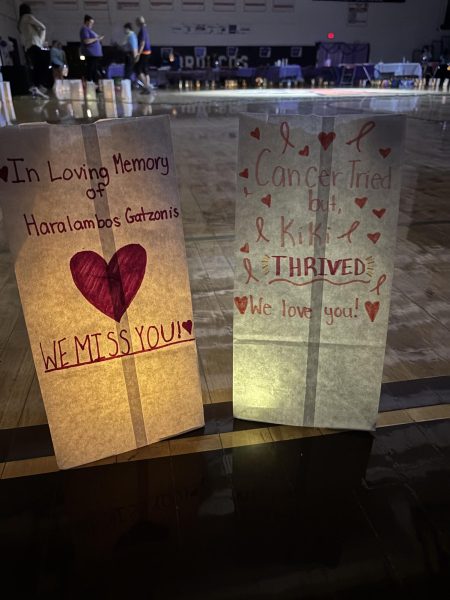 In Loving Memory
of
Haralambos Gatzonis
WE MISS YOU!
Cancer Tried
but,
Kiki
THRIVED
We love you!